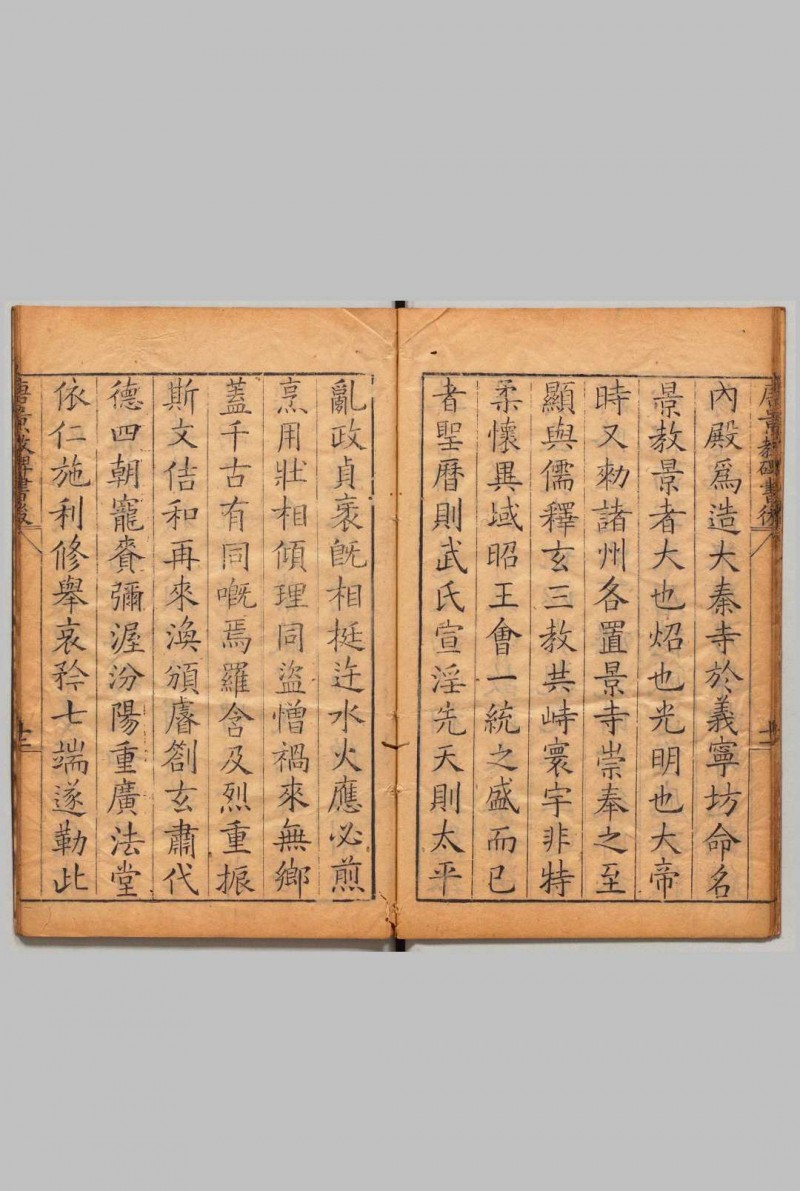 內殿爲造大秦寺於義寧坊命名
景教景者大也炤也光明也大帝
時又勑諸州各置景寺崇奉之至
顯與儒釋玄三教共峙寰宇非特
柔懷異域昭王會一統之盛而已
者聖曆則武氏宣淫先天則太平
亂政貞衺旣相挺迕水火應必煎
烹用壯相傾理同盜憎禍來無鄉
蓋千古有同嘅焉羅含及烈重振
斯文佶和再來渙頒廥劄玄肅代
德四朝寵賚彌渥汾陽重廣法堂
依仁施利修舉哀矜七端遂勒此
唐景教碑書後
唐景教碑書後